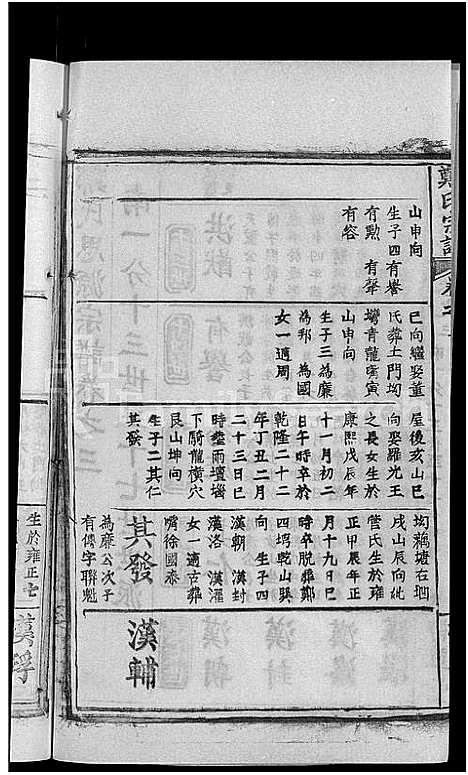 鄭氏宗譜
卷之
山申向
生子四有譽
有勲 有聲
有容
巳向繼娶董
氏葬土門坳
彎青龍嘴寅
山申向
生子三為廉
為邦 為國
女一適周
屋後亥山巳
向娶羅光王
之長女生於
康熙戊辰年
十一月初二
日午時卒於
乾隆二十二
年丁丑二月
二十三日巳
時繼雨壇塆
下騎龍橫穴
艮山坤向
生子二其仁
其發
坳藕塘右
戌山辰向妣
管氏生於雍
正甲辰年正
月十九日巳
時卒脫葬鄭
四塆乾山巽
向 生子四
漢朝 漢封
漢洛 漢濯
女一適古葬
嘴徐國泰
其發
為廉公次子
有傳字聯魁
漢輔
生於雍正七
漢浮